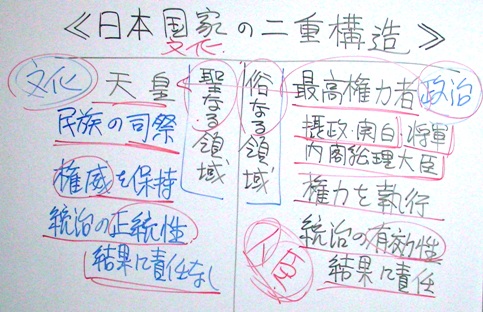 ≪日本国家の二重構造≫
文化
文化 天皇
聖なる領域
俗なる領域
最高権力者 政治
民族の司祭
摂政・関白・将軍
内閣総理大臣
権威を保持
権力を執行
統治の正統性
統治の有効性
結果に責任なし
結果に責任